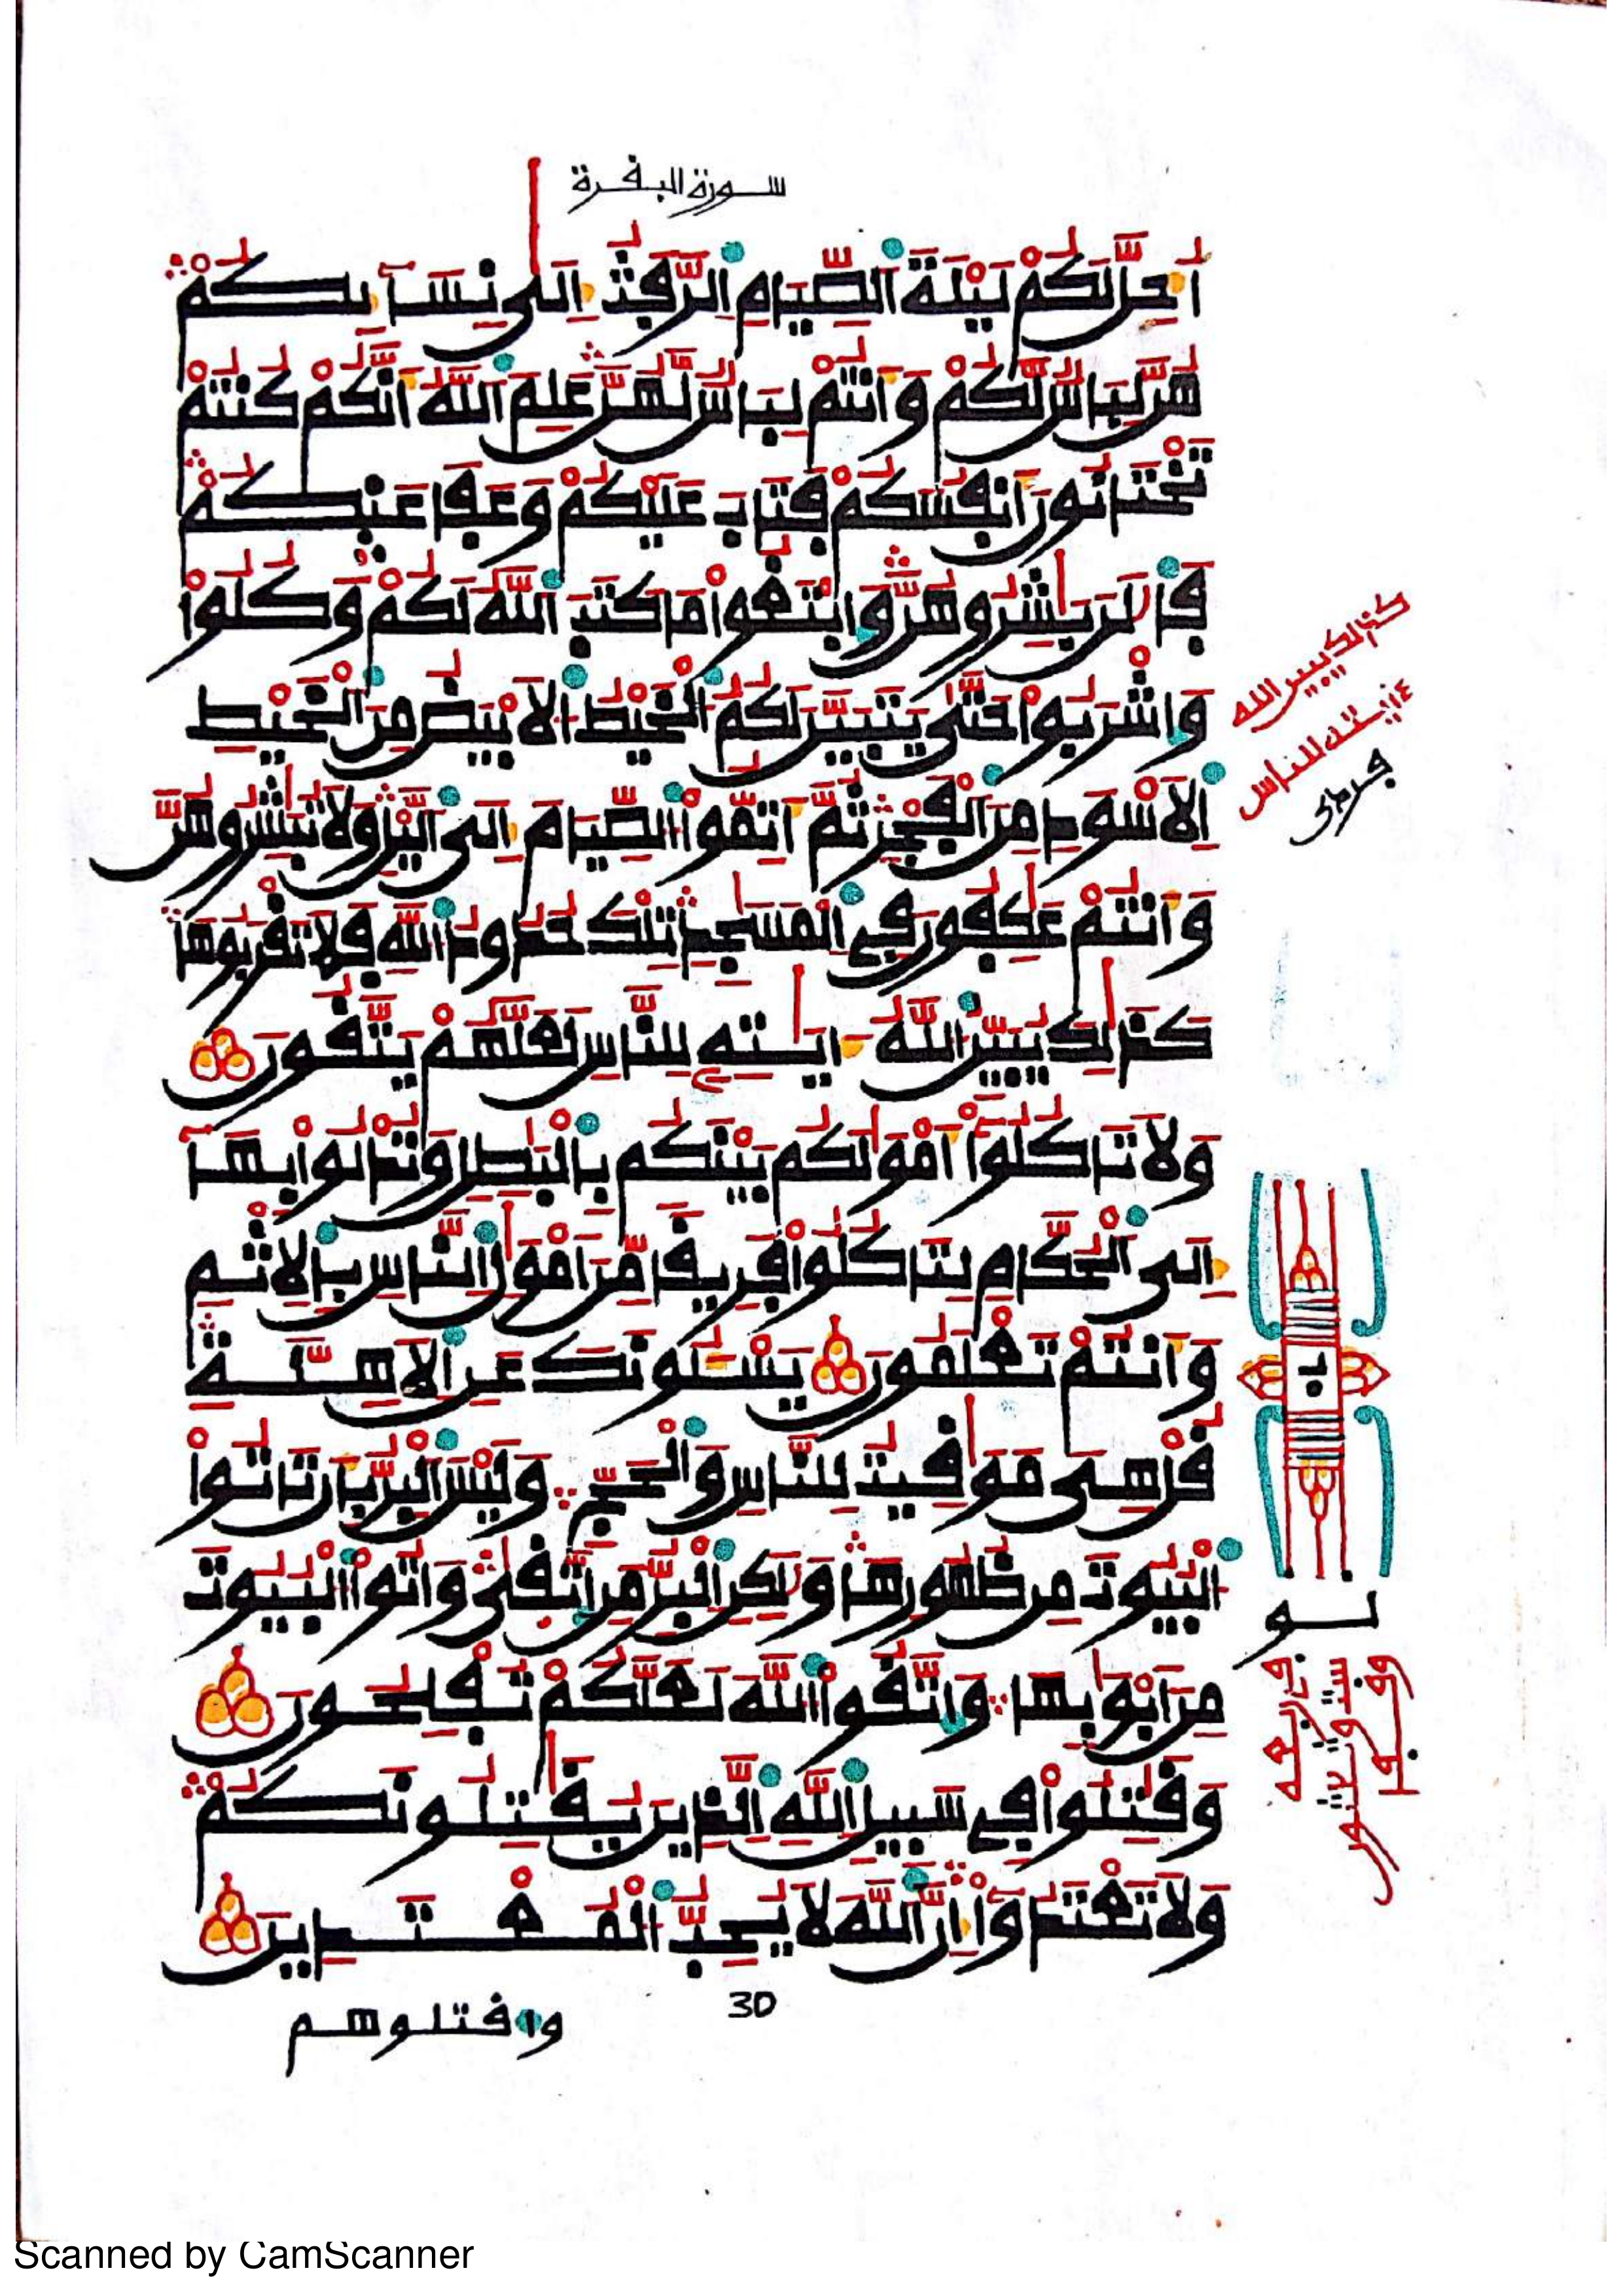 سورة البقرة
أُحِلَّ لَكُمْ لَيْلَةَ اَ۬لصِّيَامِ اِ۬لرَّفَثُ إِلَىٰ نِسَآئِكُمْ
هُنَّ لِبَاسٌ لَّكُمْ وَأَنتُمْ لِبَاسٌ لَّهُنَّ عَلِمَ اَ۬للَّهُ أَنَّكُمْ كُنتُمْ
تَخْتَانُونَ أَنفُسَكُمْ فَتَابَ عَلَيْكُمْ وَعَفَا عَنكُمْ
فَالَٰنَ بَٰشِرُوهُنَّ وَابْتَغُوا۟ مَا كَتَبَ اَ۬للَّهُ لَكُمْ وَكُلُوا۟
وَاشْرَبُوا۟ حَتَّىٰ يَتَبَيَّنَ لَكُمُ اُ۬لْخَيْطُ اُ۬لَابْيَضُ مِنَ اَ۬لْخَيْطِ
اِ۬لَاسْوَدِ مِنَ اَ۬لْفَجْرِ ثُمَّ أَتِمُّوا۟ اُ۬لصِّيَامَ إِلَى اَ۬ليْلِ وَلَا تُبَٰشِرُوهُنَّ
وَأَنتُمْ عَٰكِفُونَ فِي اِ۬لْمَسَٰجِدِ تِلْكَ حُدُودُ اُ۬للَّهِ فَلَا تَقْرَبُوهَا
كَذَٰلِكَ يُبَيِّنُ اُ۬للَّهُ ءَايَٰتِهِۦ لِلنَّاسِ لَعَلَّهُمْ يَتَّقُونَ
وَلَا تَاكُلُوٓا۟ أَمْوَٰلَكُم بَيْنَكُم بِالْبَٰطِلِ وَتُدْلُوا۟ بِهَآ
إِلَى اَ۬لْحُكَّامِ لِتَاكُلُوا۟ فَرِيقًا مِّنْ أَمْوَٰلِ اِ۬لنَّاسِ بِالِاثْمِ
وَأَنتُمْ تَعْلَمُونَ يَسْـَٔلُونَكَ عَنِ اِ۬لَاهِلَّةِ
قُلْ هِىَ مَوَٰقِيتُ لِلنَّاسِ وَالْحَجِّ وَلَيْسَ اَ۬لْبِرُّ بِأَن تَاتُوا۟
اُ۬لْبُيُوتَ مِن ظُهُورِهَا وَلَٰكِنِ اِ۬لْبِرُّ مَنِ اِ۪تَّقَىٰ وَاتُوا۟ اُ۬لْبُيُوتَ
مِنَ اَبْوَٰبِهَا وَاتَّقُوا۟ اُ۬للَّهَ لَعَلَّكُمْ تُفْلِحُونَ
وَقَٰتِلُوا۟ فِي سَبِيلِ اِ۬للَّهِ اِ۬لَّذِينَ يُقَٰتِلُونَكُمْ
وَلَا تَعْتَدُوٓا۟ إِنَّ اَ۬للَّهَ لَا يُحِبُّ اُ۬لْمُعْتَدِينَ
30
واقتلوهم
كذلك يبين الله
ءايته للناس
Scanned by CamScanner